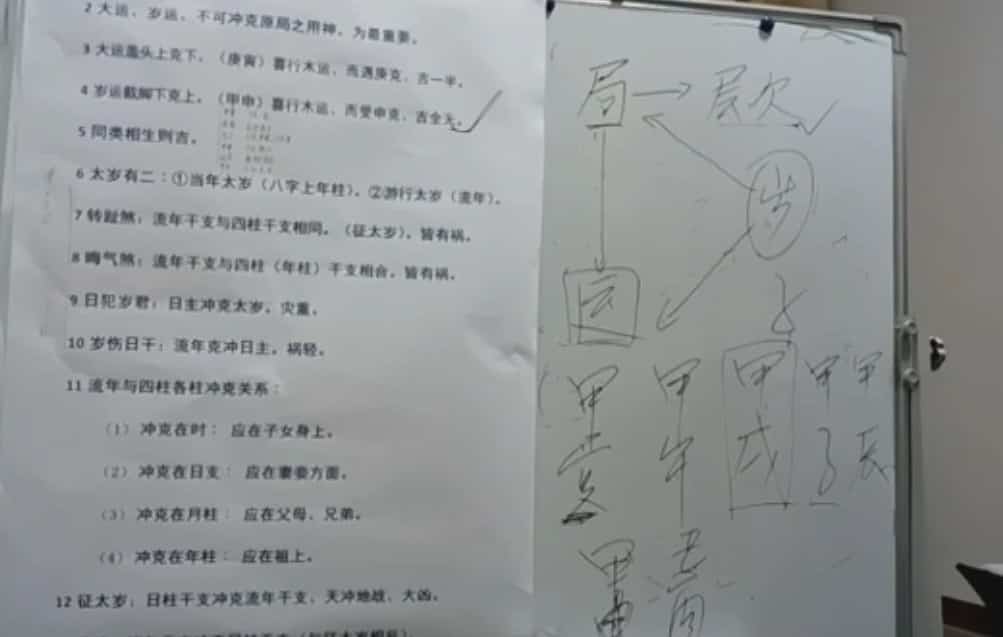 2 大运、岁运、不可冲克原局之用神，为最重要。
3 大运盖头上克下。（庚寅）喜行木运，而遇庚克，吉一半。
4 岁运截脚下克上。（甲申）喜行木运，而受申克，吉全无。
5 同类相生则吉。
6 太岁有二：①当年太岁（八字上年柱）。②游行太岁（流年）。
7 转趾煞：流年干支与四柱干支相同。（征太岁）。皆有祸。
8 晦气煞：流年干支与四柱（年柱）干支相合。皆有祸。
9 日犯岁君：日主冲克太岁。灾重。
10 岁伤日干：流年克冲日主。祸轻。
11 流年与四柱各柱冲克关系：
（1） 冲克在时： 应在子女身上。
（2） 冲克在日支： 应在妻妾方面。
（3） 冲克在月柱： 应在父母、兄弟。
（4） 冲克在年柱： 应在祖上。
12 征太岁：日柱干支冲克流年干支。天冲地战。大凶。
局 → 层次
岁
运
甲 甲 甲 甲
午 戌 子 辰
甲